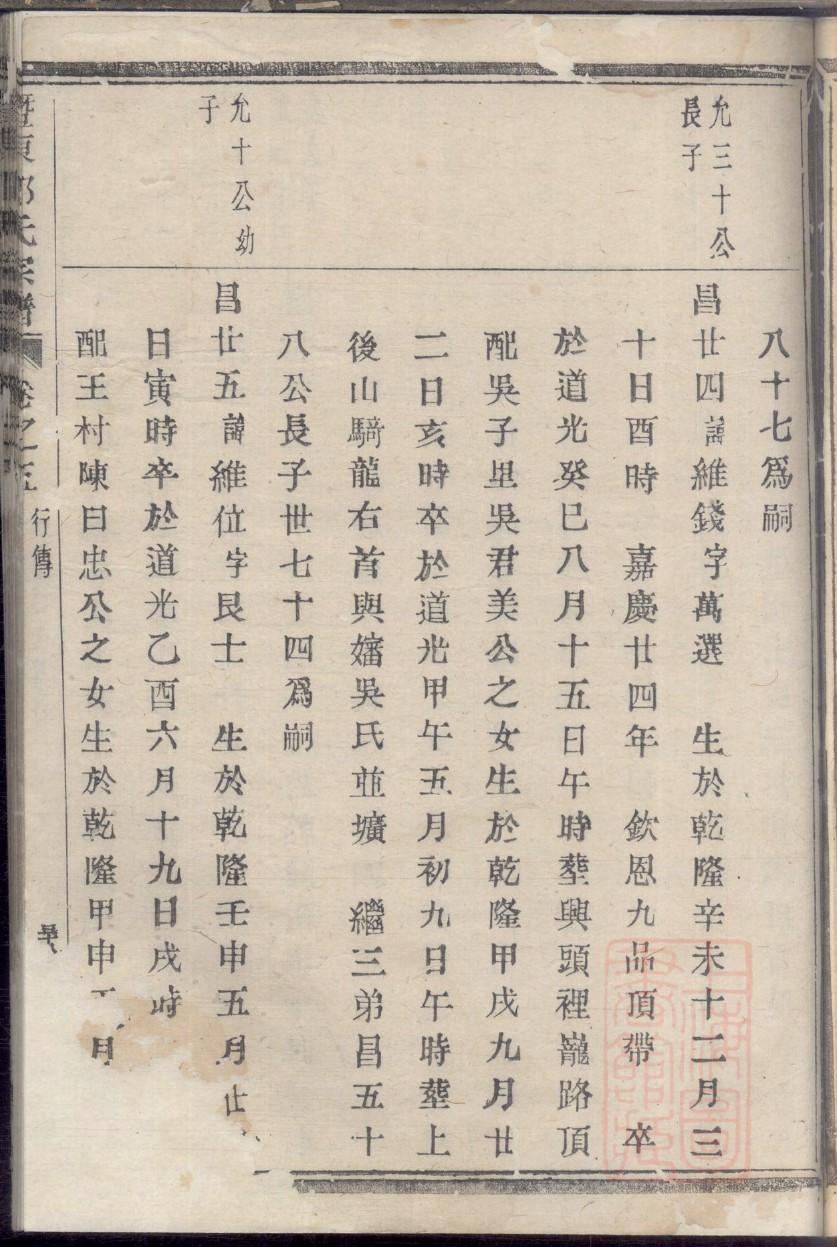 允三十公
長子
允十公幼
子
八十七爲嗣
昌廿四諱維錢字萬選 生於乾隆辛未十二月三
十日酉時 嘉慶廿四年 欽恩九品頂帶 卒
於道光癸巳八月十五日午時塟興頭裡巃路頂
配吳子里吳君美公之女生於乾隆甲戌九月廿
二日亥時卒於道光甲午五月初九日午時塟上
後山騎龍右首與嬸吳氏並壙 繼三弟昌五十
八公長子世七十四爲嗣
昌廿五諱維位字艮士 生於乾隆壬申五月廿
日寅時卒於道光乙酉六月十九日戌時
配王村陳曰忠公之女生於乾隆甲申 月
暨東 氏宗譜 卷之五 行傳